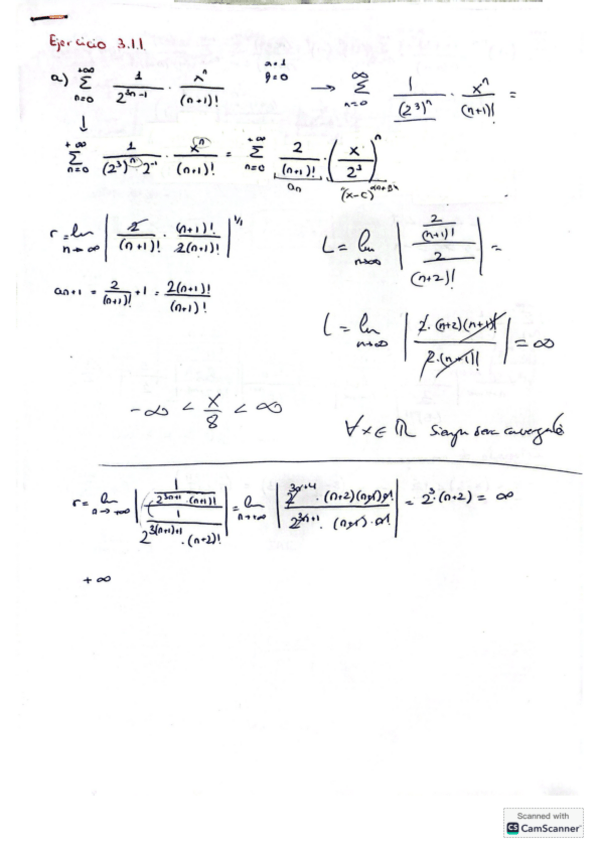 Ejercicio 3.1.1
a) $\sum_{n=0}^{+\infty} \frac{1}{2^{3n-1}} \cdot \frac{x^n}{(n+1)!}$ $\rightarrow \sum_{n=0}^{\infty} \frac{1}{(2^3)^n} \cdot \frac{x^n}{(n+1)!} =$
↓
$\sum_{n=0}^{+\infty} \frac{1}{(2^3)^n \cdot 2^{-1}} \cdot \frac{x^n}{(n+1)!} = \sum_{n=0}^{+\infty} \frac{2}{(n+1)!} \cdot \left(\frac{x}{2^3}\right)^n$
an
$r = \lim_{n \to \infty} \left| \frac{2}{(n+1)!} \cdot \frac{(n+1)!}{2(n+1)!} \right|^{1/1}$
$L = \lim_{n \to \infty} \left| \frac{\frac{2}{(n+1)!}}{\frac{2}{(n+2)!}} \right| =$
$an+1 = \frac{2}{(n+1)!} + 1 = \frac{2(n+1)!}{(n+1)!}$
$L = \lim_{n \to \infty} \left| \frac{2 \cdot (n+2)(n+1)!}{2 \cdot (n+1)!} \right| = \infty$
$-\infty < \frac{x}{8} < \infty$
$\forall x \in \mathbb{R}$
$r = \lim_{n \to +\infty} \left| \frac{\frac{1}{2^{3n+1} \cdot (n+1)!}}{\frac{1}{2^{3(n+1)+1} \cdot (n+2)!}} \right| = \lim_{n \to +\infty} \left| \frac{2^{3n+4} \cdot (n+2)(n+1)n!}{2^{3n+1} \cdot (n+1) \cdot n!} \right| = 2^3 \cdot (n+2) = \infty$
$+\infty$
Scanned with
CS CamScanner